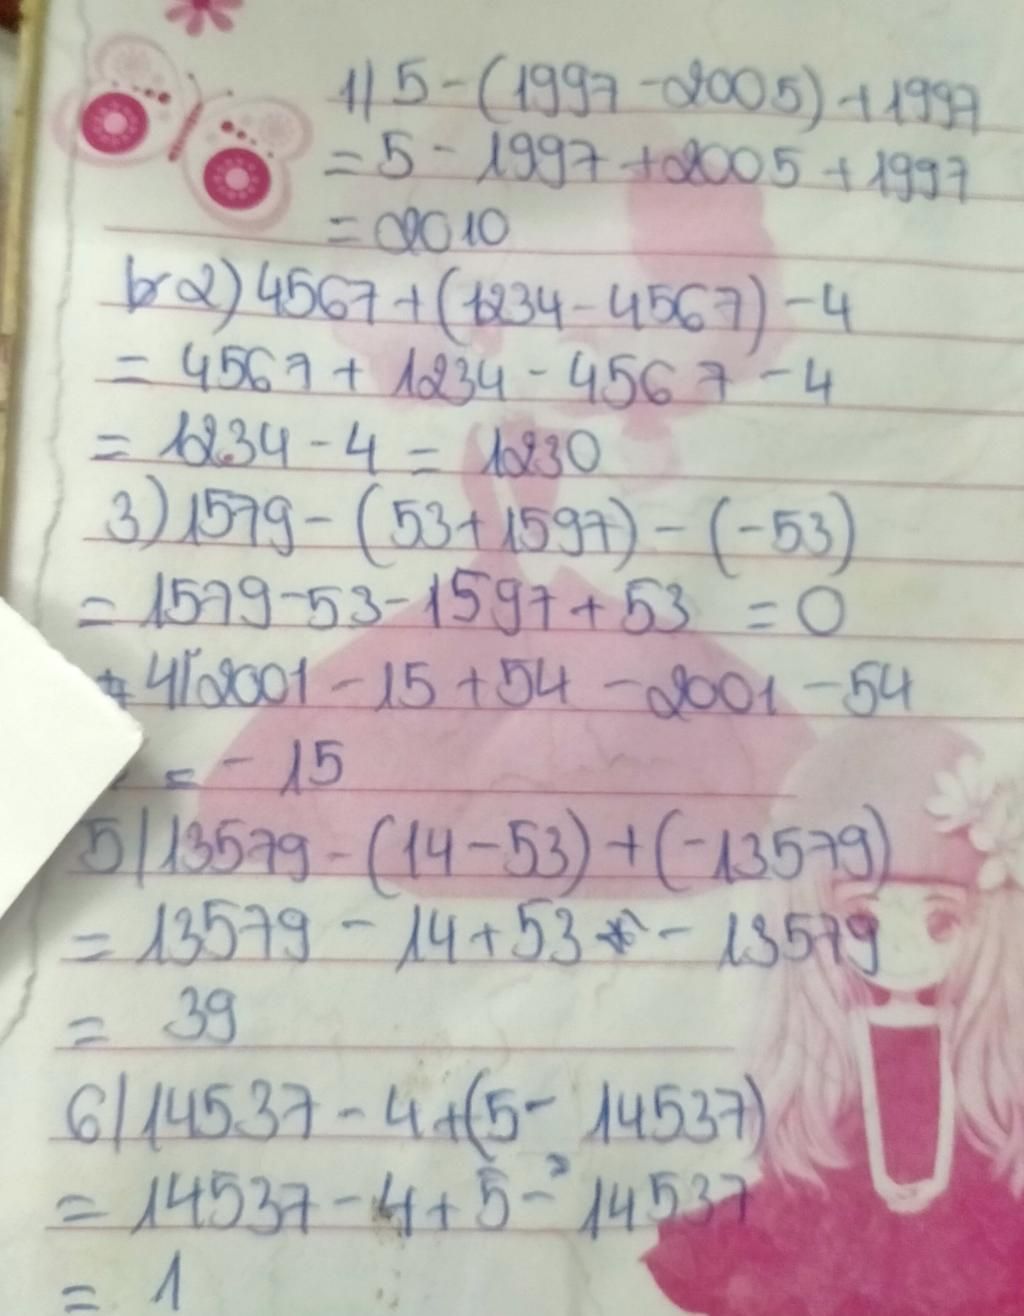 1) 5 - (1997 - 2005) + 1997
= 5 - 1997 + 2005 + 1997
= 2010
2) 4567 + (1234 - 4567) - 4
= 4567 + 1234 - 4567 - 4
= 1234 - 4 = 1230
3) 1579 - (53 + 1597) - (-53)
= 1579 - 53 - 1597 + 53 = 0
4) 2001 - 15 + 54 - 2001 - 54
= - 15
5) 13579 - (14 - 53) + (-13579)
= 13579 - 14 + 53 - 13579
= 39
6) 14537 - 4 + (5 - 14537)
= 14537 - 4 + 5 - 14537
= 1